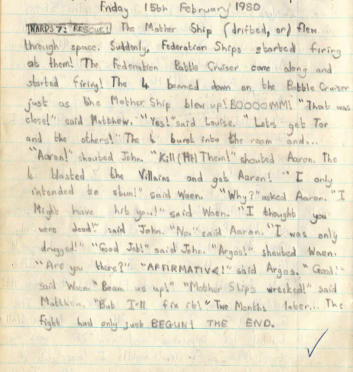 Friday 15th February 1980
WARDS 7: RESCUE! The Mother Ship (drifted, or) flew
through space. Suddenly, Federation Ships started firing
at them! The Federation Battle Cruiser came along and
started firing! The 4 beamed down on the Battle Cruiser
just as the Mother Ship blew up! BOOOOMM! "That was
close!" said Matthew. "Yes!" said Louise. "Lets get Tor
and the others!" The 4 burst into the room and...
"Aaron!" shouted John. "Kill Them!" shouted Aaron. The
4 blasted the Villains and got Aaron! "I only
intended to stun!" said Waen. "Why?" asked Aaron. "I
Might have hit you!" said Waen. "I thought you
were dead!" said John. "No." said Aaron. "I was only
drugged!" "Good Job!" said John. "Argos!" shouted Waen.
"Are you there?" "AFFIRMATIVE!" said Argos. "Good!"
said Waen. "Beam us up!" "Mother Ships wrecked!" said
Matthew. "But I'll fix it!" Two Months later... The
fight had only just BEGUN! THE END.